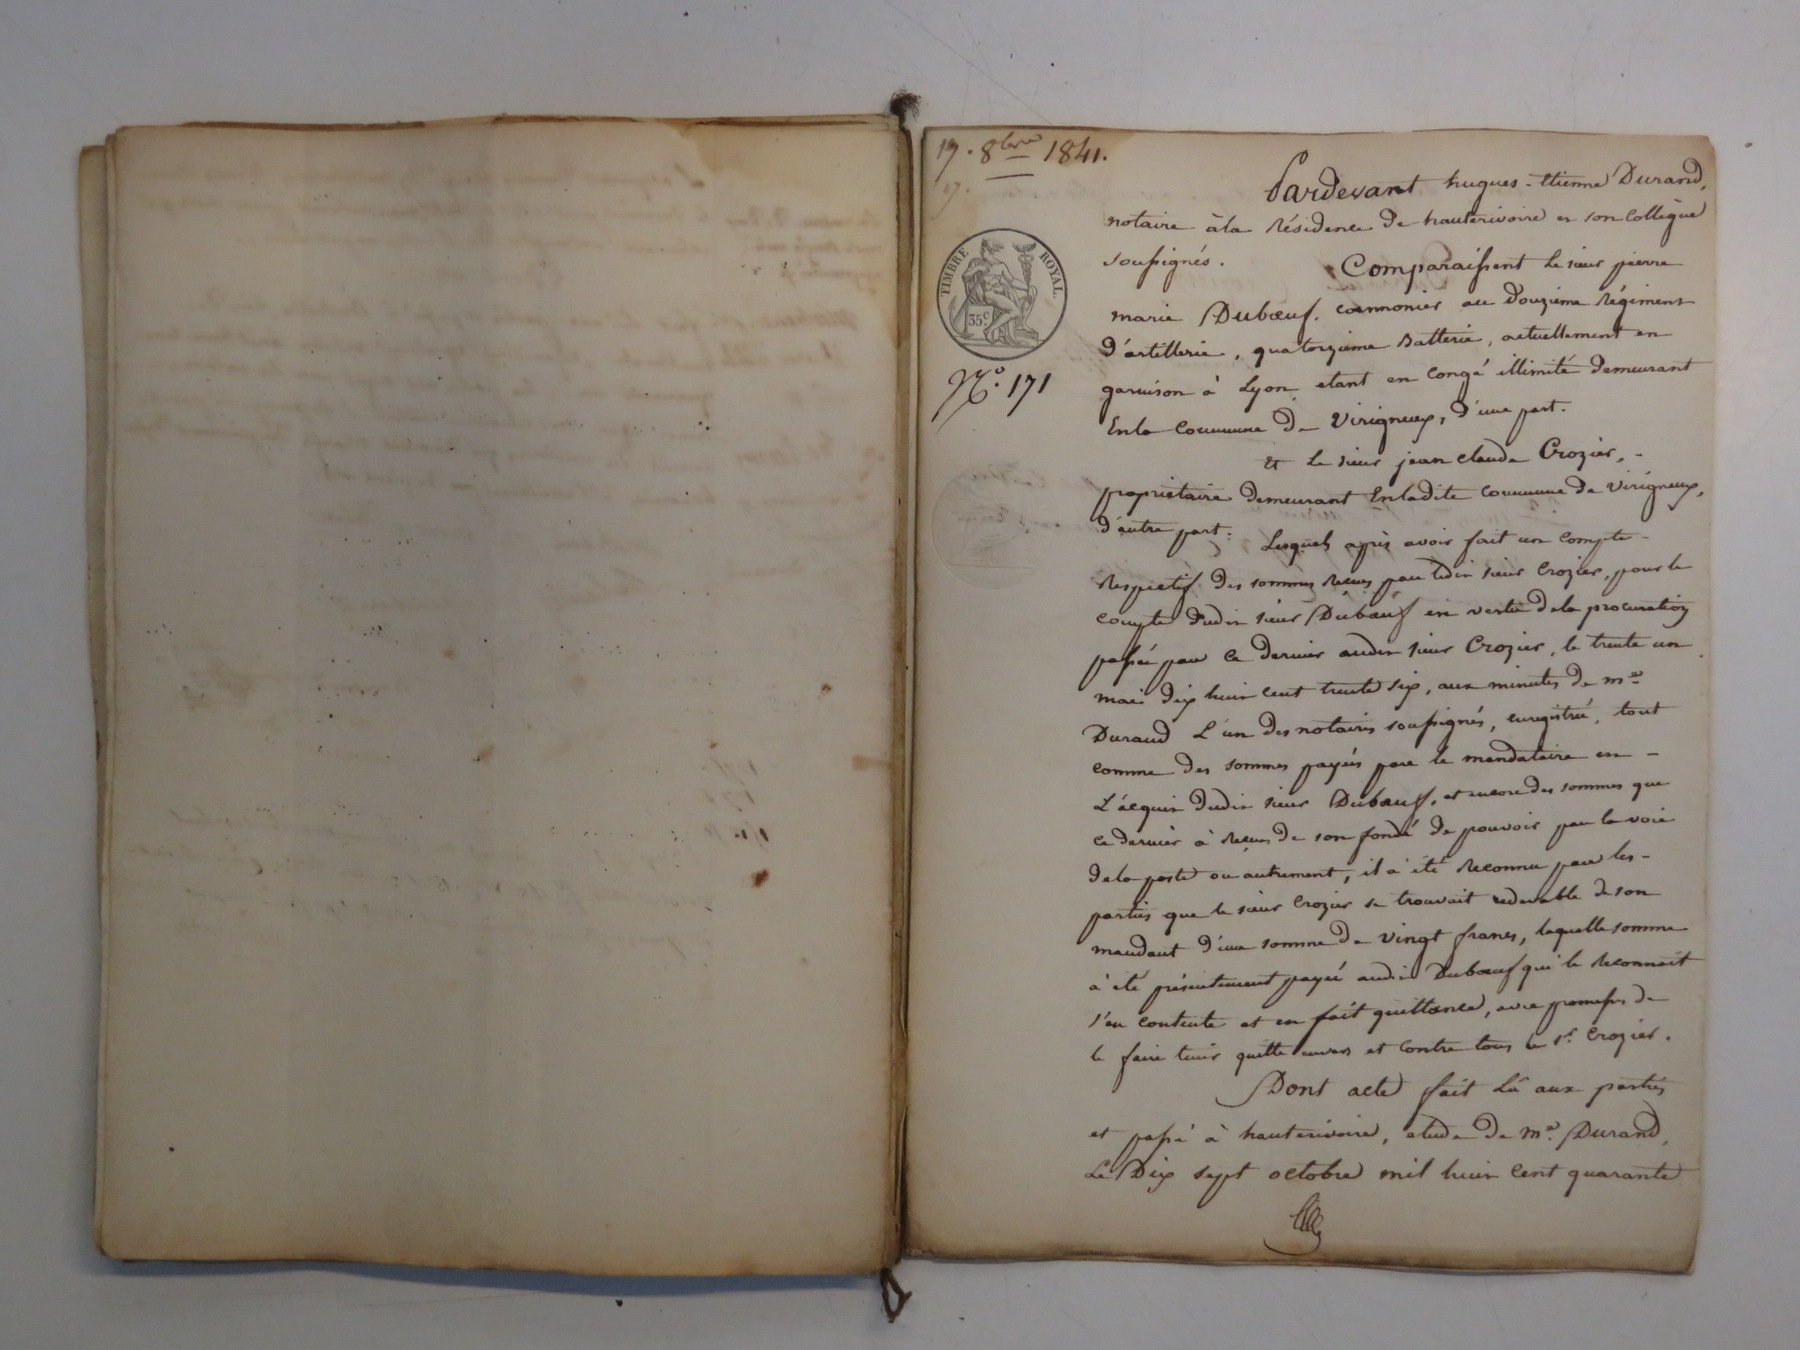 17. 8bre 1841.
17.
TIMBRE ROYAL
35 c
No. 171
Pardevant hugues-Etienne Durand,
notaire àla Résidence de hauterivoire et son Collègue
soussignés.
Comparaissent le sieur pierre
marie Dubœuf. cannonier au Douzième Régiment
d'artillerie, quatorzième Batterie, actuellement en
garnison à Lyon, etant en congé illimité demeurant
Enla Commune De Virigneux, d'une part.
Et le sieur jean claude Crozier, -
propriétaire demeurant Enladite commune de Virigneux,
d'autre part. Lesquels après avoir fait un compte-
Respectif des sommes Reçues par ledit sieur Crozier, pour le
compte dudit sieur Dubœuf en vertu dela procuration
passée par ce dernier audit sieur Crozier, le trente un
mai dix huit cent trente six, aux minutes de me
Durand L'un des notaires soussignés, enregistrée, tout
comme des sommes payées par le mandataire en -
L'acquit dudit sieur Dubœuf, et encore des sommes que
ce dernier à Reçues De son fondé de pouvoir par la voie
dela poste ou autrement, il à été Reconnu par les-
parties que le sieur Crozier se trouvait redevable de son
mandant d'une somme De Vingt francs, laquelle somme
à été présentement payée audit Dubœuf qui le Reconnait
s'en contente et en fait quittance, avec promesse de
le faire tenir quitte envers et contre tous le sr. Crozier.
Dont acte fait Lû aux parties
et passé à hauterivoire, etude De me. Durand,
Le Dix sept octobre mil huit cent quarante